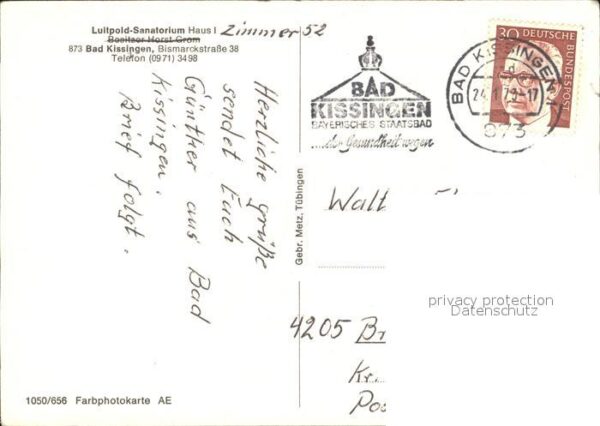 Luitpold-Sanatorium Haus I Zimmer 52
Besitzer Horst Grom
873 Bad Kissingen, Bismarckstraße 38
Telefon (0971) 3498
Herzliche grüße
sendet Euch
Günther aus Bad
Kissingen.
Brief folgt.
Gebr. Metz, Tübingen
BAD
KISSINGEN
BAYERISCHES STAATSBAD
...der Gesundheit wegen
BAD KISSINGEN 1
d
873
30 DEUTSCHE BUNDESPOST
Walt
4205 B
Kr.
Pos
privacy protection
Datenschutz
1050/656 Farbphotokarte AE